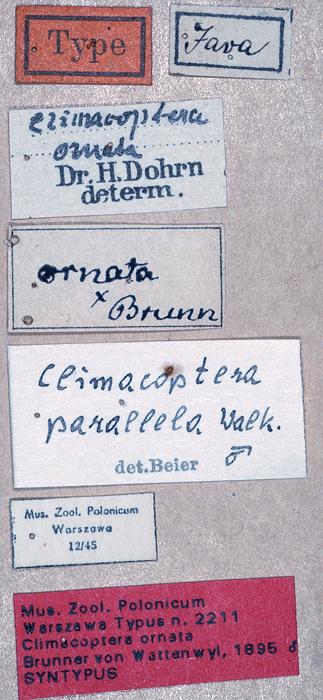 Type
Java
Climacoptera
ornata
Dr. H. Dohrn
determ.
ornata
x Brunn
Climacoptera
parallela Walk.
det. Beier ♂
Mus. Zool. Polonicum
Warszawa
12/45
Mus. Zool. Polonicum
Warszawa Typus n. 2211
Climacoptera ornata
Brunner von Wattenwyl, 1895 ♂
SYNTYPUS